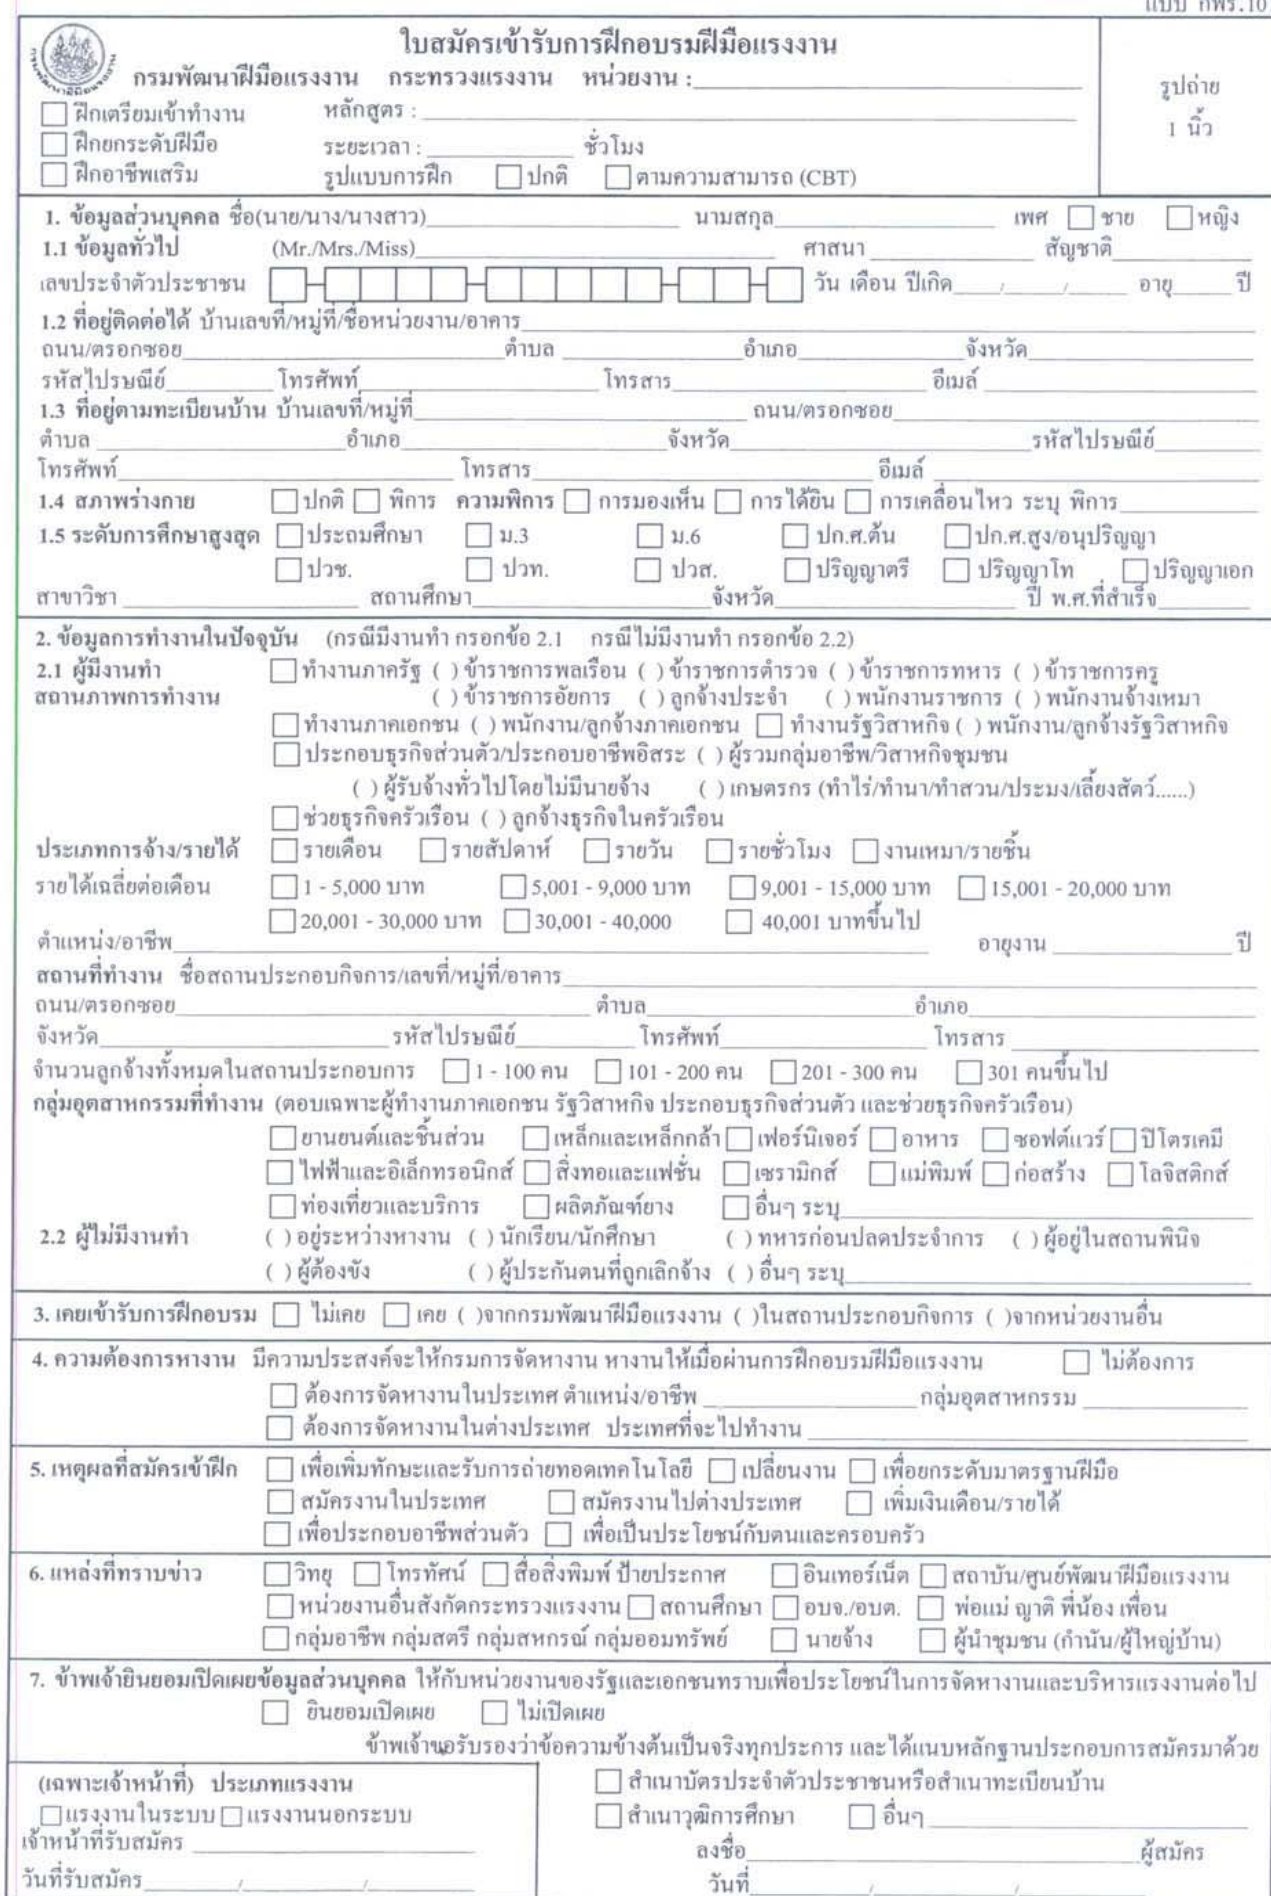 แบบ กพร.10
ใบสมัครเข้ารับการฝึกอบรมฝีมือแรงงาน
กรมพัฒนาฝีมือแรงงาน กระทรวงแรงงาน หน่วยงาน :
รูปถ่าย
1 นิ้ว
ฝึกเตรียมเข้าทำงาน หลักสูตร :
ฝึกยกระดับฝีมือ ระยะเวลา : ชั่วโมง
ฝึกอาชีพเสริม รูปแบบการฝึก ปกติ ตามความสามารถ (CBT)
1. ข้อมูลส่วนบุคคล ชื่อ(นาย/นาง/นางสาว) นามสกุล เพศ ชาย หญิง
1.1 ข้อมูลทั่วไป (Mr./Mrs./Miss) ศาสนา สัญชาติ
เลขประจำตัวประชาชน วัน เดือน ปีเกิด / / อายุ ปี
1.2 ที่อยู่ติดต่อได้ บ้านเลขที่/หมู่ที่/ชื่อหน่วยงาน/อาคาร
ถนน/ตรอกซอย ตำบล อำเภอ จังหวัด
รหัสไปรษณีย์ โทรศัพท์ โทรสาร อีเมล์
1.3 ที่อยู่ตามทะเบียนบ้าน บ้านเลขที่/หมู่ที่ ถนน/ตรอกซอย
ตำบล อำเภอ จังหวัด รหัสไปรษณีย์
โทรศัพท์ โทรสาร อีเมล์
1.4 สภาพร่างกาย ปกติ พิการ ความพิการ การมองเห็น การได้ยิน การเคลื่อนไหว ระบุ พิการ
1.5 ระดับการศึกษาสูงสุด ประถมศึกษา ม.3 ม.6 ปก.ศ.ต้น ปก.ศ.สูง/อนุปริญญา
ปวช. ปวท. ปวส. ปริญญาตรี ปริญญาโท ปริญญาเอก
สาขาวิชา สถานศึกษา จังหวัด ปี พ.ศ.ที่สำเร็จ
2. ข้อมูลการทำงานในปัจจุบัน (กรณีมีงานทำ กรอกข้อ 2.1 กรณีไม่มีงานทำ กรอกข้อ 2.2)
2.1 ผู้มีงานทำ ทำงานภาครัฐ ( ) ข้าราชการพลเรือน ( ) ข้าราชการตำรวจ ( ) ข้าราชการทหาร ( ) ข้าราชการครู
สถานภาพการทำงาน ( ) ข้าราชการอัยการ ( ) ลูกจ้างประจำ ( ) พนักงานราชการ ( ) พนักงานจ้างเหมา
ทำงานภาคเอกชน ( ) พนักงาน/ลูกจ้างภาคเอกชน ทำงานรัฐวิสาหกิจ ( ) พนักงาน/ลูกจ้างรัฐวิสาหกิจ
ประกอบธุรกิจส่วนตัว/ประกอบอาชีพอิสระ ( ) ผู้รวมกลุ่มอาชีพ/วิสาหกิจชุมชน
( ) ผู้รับจ้างทั่วไปโดยไม่มีนายจ้าง ( ) เกษตรกร (ทำไร่/ทำนา/ทำสวน/ประมง/เลี้ยงสัตว์......)
ช่วยธุรกิจครัวเรือน ( ) ลูกจ้างธุรกิจในครัวเรือน
ประเภทการจ้าง/รายได้ รายเดือน รายสัปดาห์ รายวัน รายชั่วโมง งานเหมา/รายชิ้น
รายได้เฉลี่ยต่อเดือน 1 - 5,000 บาท 5,001 - 9,000 บาท 9,001 - 15,000 บาท 15,001 - 20,000 บาท
20,001 - 30,000 บาท 30,001 - 40,000 40,001 บาทขึ้นไป
ตำแหน่ง/อาชีพ อายุงาน ปี
สถานที่ทำงาน ชื่อสถานประกอบกิจการ/เลขที่/หมู่ที่/อาคาร
ถนน/ตรอกซอย ตำบล อำเภอ
จังหวัด รหัสไปรษณีย์ โทรศัพท์ โทรสาร
จำนวนลูกจ้างทั้งหมดในสถานประกอบการ 1 - 100 คน 101 - 200 คน 201 - 300 คน 301 คนขึ้นไป
กลุ่มอุตสาหกรรมที่ทำงาน (ตอบเฉพาะผู้ทำงานภาคเอกชน รัฐวิสาหกิจ ประกอบธุรกิจส่วนตัว และช่วยธุรกิจครัวเรือน)
ยานยนต์และชิ้นส่วน เหล็กและเหล็กกล้า เฟอร์นิเจอร์ อาหาร ซอฟต์แวร์ ปิโตรเคมี
ไฟฟ้าและอิเล็กทรอนิกส์ สิ่งทอและแฟชั่น เซรามิกส์ แม่พิมพ์ ก่อสร้าง โลจิสติกส์
ท่องเที่ยวและบริการ ผลิตภัณฑ์ยาง อื่นๆ ระบุ
2.2 ผู้ไม่มีงานทำ ( ) อยู่ระหว่างหางาน ( ) นักเรียน/นักศึกษา ( ) ทหารก่อนปลดประจำการ ( ) ผู้อยู่ในสถานพินิจ
( ) ผู้ต้องขัง ( ) ผู้ประกันตนที่ถูกเลิกจ้าง ( ) อื่นๆ ระบุ
3. เคยเข้ารับการฝึกอบรม ไม่เคย เคย ( )จากกรมพัฒนาฝีมือแรงงาน ( )ในสถานประกอบกิจการ ( )จากหน่วยงานอื่น
4. ความต้องการหางาน มีความประสงค์จะให้กรมการจัดหางาน หางานให้เมื่อผ่านการฝึกอบรมฝีมือแรงงาน ไม่ต้องการ
ต้องการจัดหางานในประเทศ ตำแหน่ง/อาชีพ กลุ่มอุตสาหกรรม
ต้องการจัดหางานในต่างประเทศ ประเทศที่จะไปทำงาน
5. เหตุผลที่สมัครเข้าฝึก เพื่อเพิ่มทักษะและรับการถ่ายทอดเทคโนโลยี เปลี่ยนงาน เพื่อยกระดับมาตรฐานฝีมือ
สมัครงานในประเทศ สมัครงานไปต่างประเทศ เพิ่มเงินเดือน/รายได้
เพื่อประกอบอาชีพส่วนตัว เพื่อเป็นประโยชน์กับตนและครอบครัว
6. แหล่งที่ทราบข่าว วิทยุ โทรทัศน์ สื่อสิ่งพิมพ์ ป้ายประกาศ อินเทอร์เน็ต สถาบัน/ศูนย์พัฒนาฝีมือแรงงาน
หน่วยงานอื่นสังกัดกระทรวงแรงงาน สถานศึกษา อบจ./อบต. พ่อแม่ ญาติ พี่น้อง เพื่อน
กลุ่มอาชีพ กลุ่มสตรี กลุ่มสหกรณ์ กลุ่มออมทรัพย์ นายจ้าง ผู้นำชุมชน (กำนัน/ผู้ใหญ่บ้าน)
7. ข้าพเจ้ายินยอมเปิดเผยข้อมูลส่วนบุคคล ให้กับหน่วยงานของรัฐและเอกชนทราบเพื่อประโยชน์ในการจัดหางานและบริหารแรงงานต่อไป
ยินยอมเปิดเผย ไม่เปิดเผย
ข้าพเจ้าขอรับรองว่าข้อความข้างต้นเป็นจริงทุกประการ และได้แนบหลักฐานประกอบการสมัครมาด้วย
(เฉพาะเจ้าหน้าที่) ประเภทแรงงาน
แรงงานในระบบ แรงงานนอกระบบ
เจ้าหน้าที่รับสมัคร
วันที่รับสมัคร / /
สำเนาบัตรประจำตัวประชาชนหรือสำเนาทะเบียนบ้าน
สำเนาวุฒิการศึกษา อื่นๆ
ลงชื่อ ผู้สมัคร
วันที่ / /